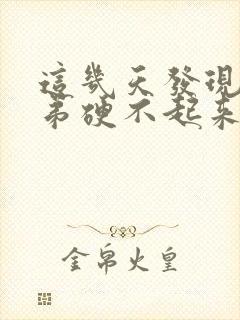 這幾天發現
弟硬不起來
金帛火皇